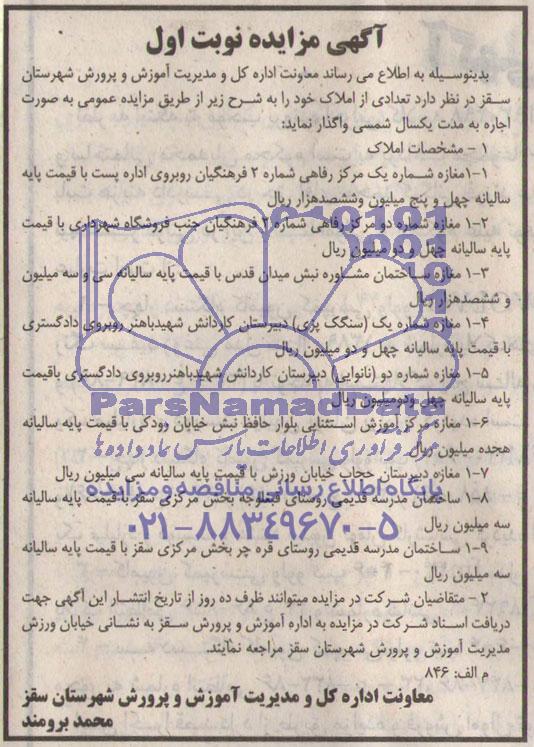 آگهی مزایده نوبت اول
بدینوسیله به اطلاع می رساند معاونت اداره کل و مدیریت آموزش و پرورش شهرستان
سقز در نظر دارد تعدادی از املاک خود را به شرح زیر از طریق مزایده عمومی به صورت
اجاره به مدت یکسال شمسی واگذار نماید:
۱ - مشخصات املاک
۱-۱مغازه شماره یک مرکز رفاهی شماره ۲ فرهنگیان روبروی اداره پست با قیمت پایه
سالیانه چهل و پنج میلیون وششصدهزار ریال
۱-۲ مغازه شماره دو مرکز رفاهی شماره ۲ فرهنگیان جنب فروشگاه شهرداری با قیمت
پایه سالیانه چهل و دو میلیون ریال
۱-۳ مغازه ساختمان مشاوره نبش میدان قدس با قیمت پایه سالیانه سی و سه میلیون
و ششصدهزار ریال
۱-۴ مغازه شماره یک (سنگک پزی) دبیرستان کاردانش شهیدباهنر روبروی دادگستری
با قیمت پایه سالیانه چهل و دو میلیون ریال
۱-۵ مغازه شماره دو (نانوایی) دبیرستان کاردانش شهیدباهنرروبروی دادگستری باقیمت
پایه سالیانه چهل ودومیلیون ریال
ParsNamadData
۱-۶ مغازه مرکز آموزش استثنایی بلوار حافظ نبش خیابان رودکی با قیمت پایه سالیانه
هجده میلیون ریال
مرکز فرآوری اطلاعات پارس نماد داده ها
۱-۷ مغازه دبیرستان حجاب خیابان ورزش با قیمت پایه سالیانه سی میلیون ریال
پایگاه اطلاع رسانی مناقصه و مزایده
۱-۸ ساختمان مدرسه قدیمی روستای قبغلوجه بخش مرکزی سقز با قیمت پایه سالیانه
سه میلیون ریال
۰۲۱-۸۸۳۴۹۶۷۰-۵
۱-۹ ساختمان مدرسه قدیمی روستای قره چر بخش مرکزی سقز با قیمت پایه سالیانه
سه میلیون ریال
۲ - متقاضیان شرکت در مزایده میتوانند ظرف ده روز از تاریخ انتشار این آگهی جهت
دریافت اسناد شرکت در مزایده به اداره آموزش و پرورش سقز به نشانی خیابان ورزش
مدیریت آموزش و پرورش شهرستان سقز مراجعه نمایند.
م الف: ۸۴۶
معاونت اداره کل و مدیریت آموزش و پرورش شهرستان سقز
محمد برومند